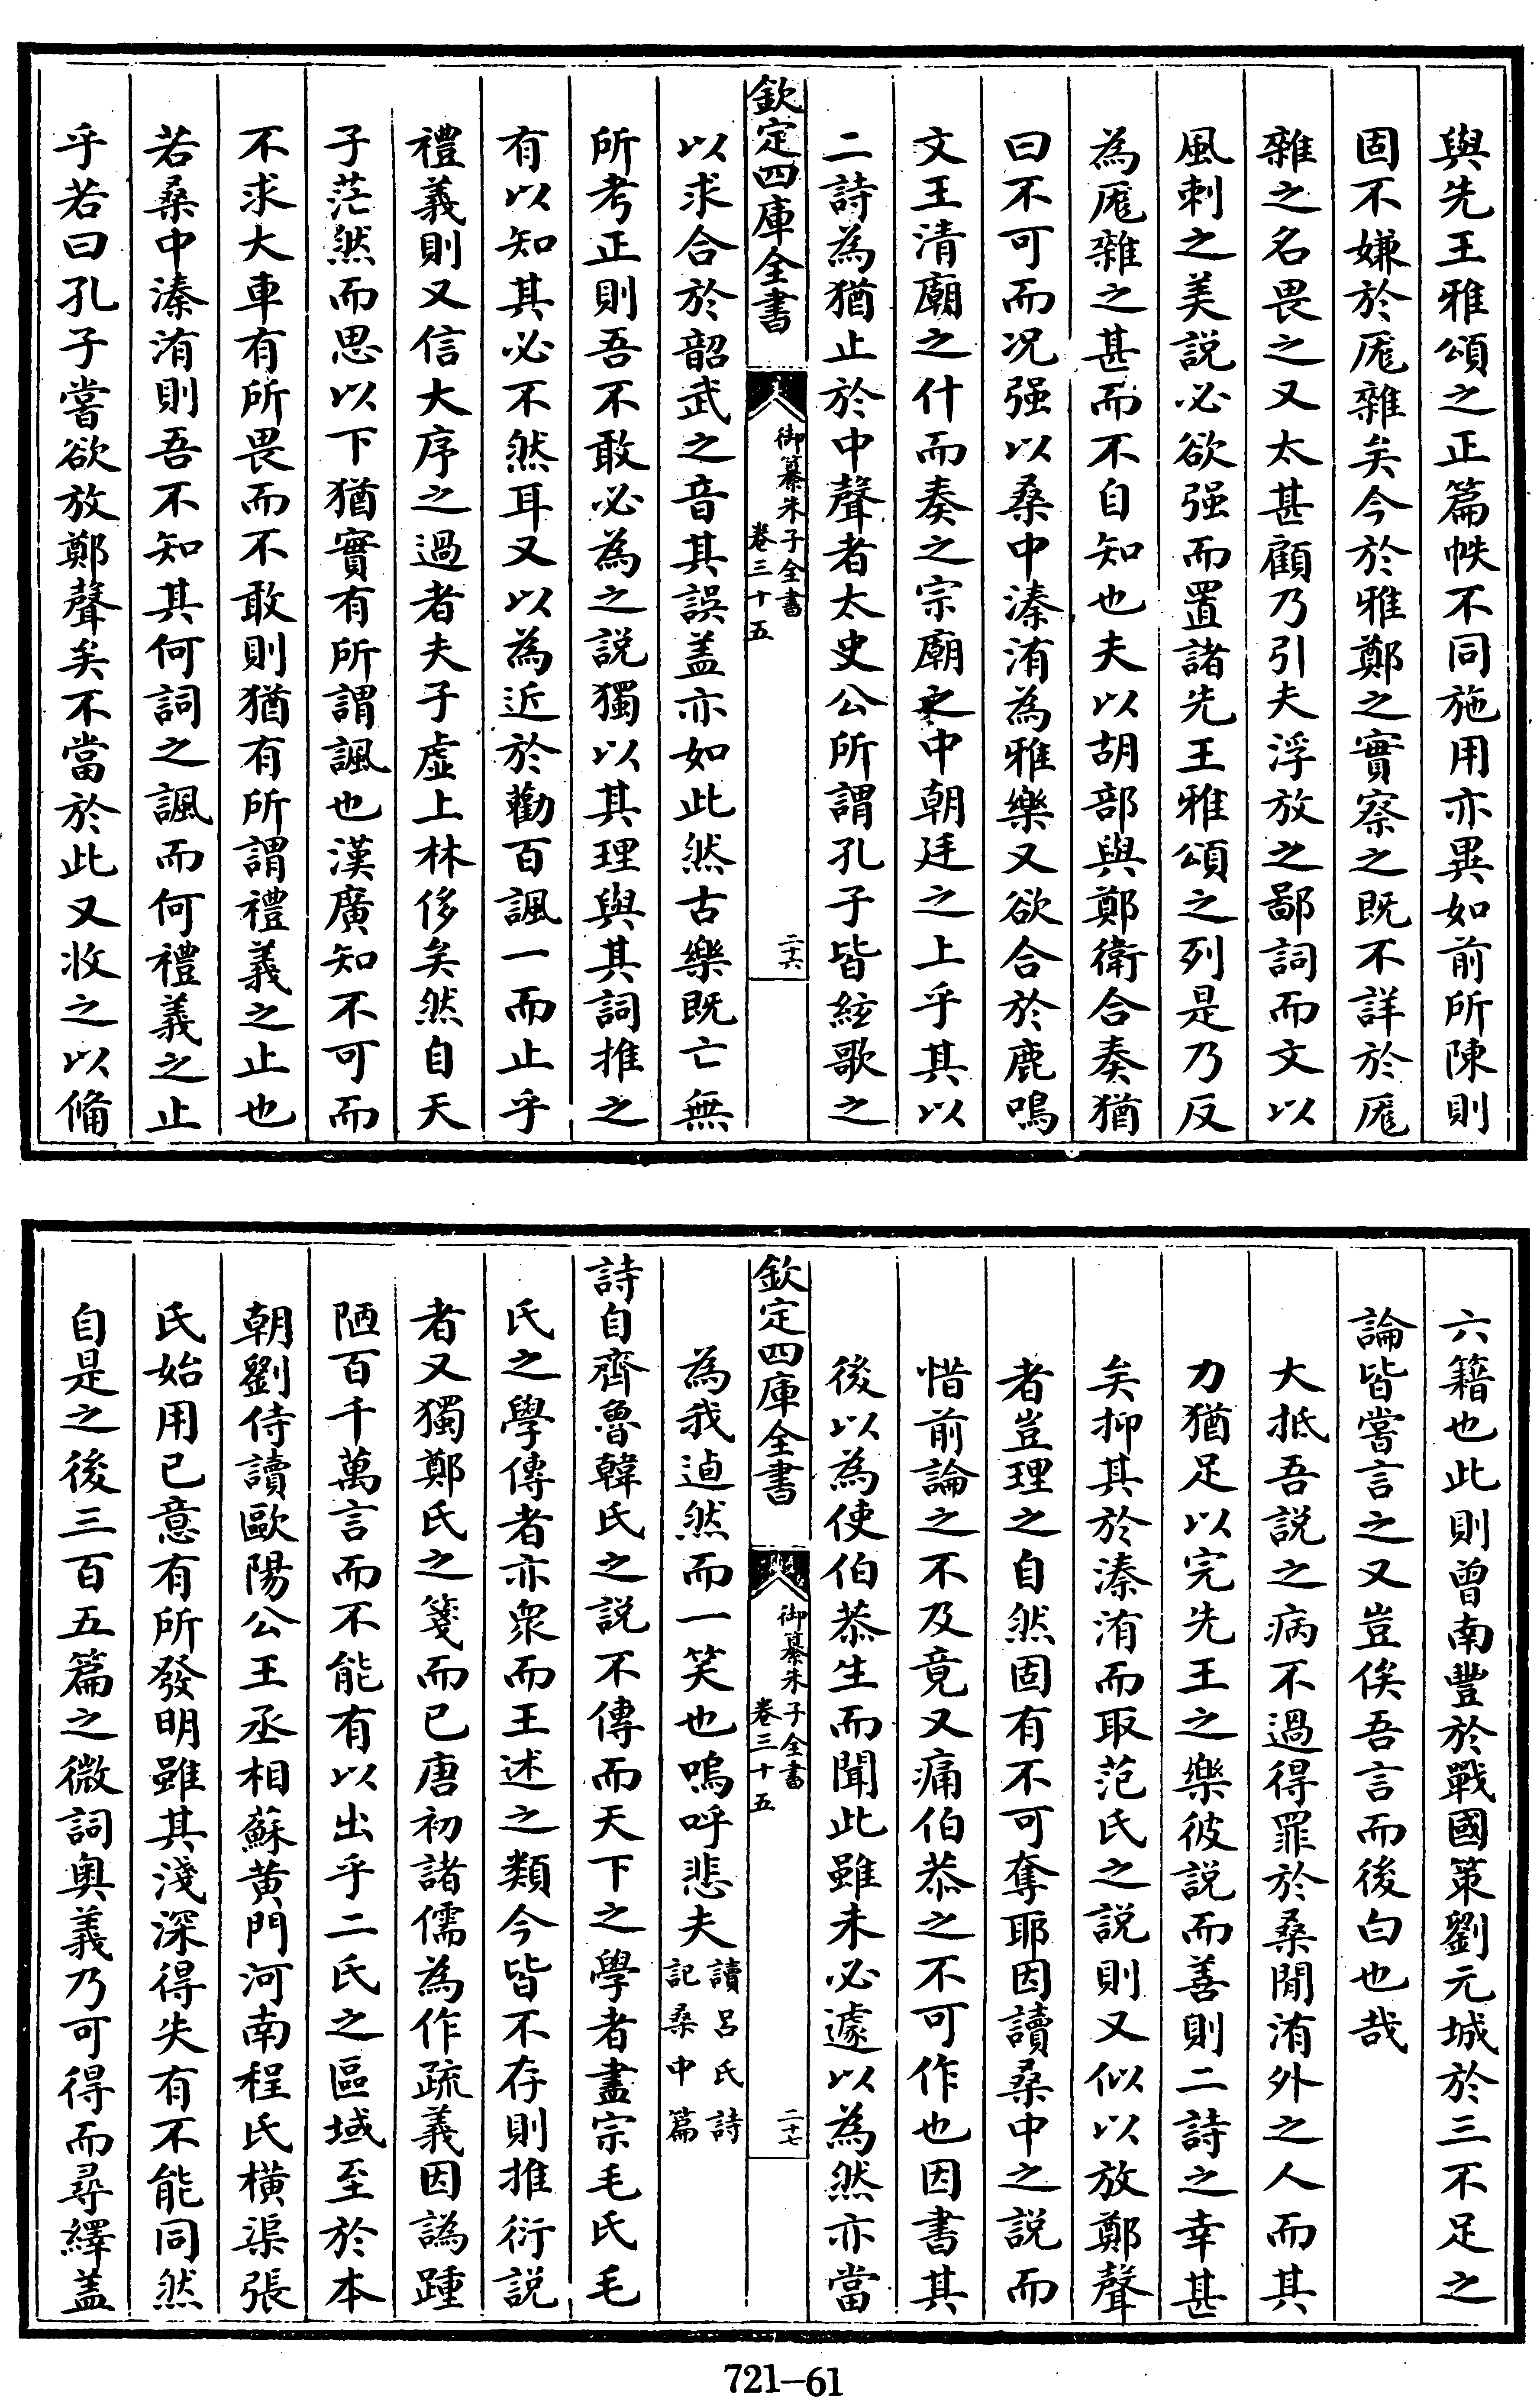 與先王雅頌之正篇帙不同施用亦異如前所陳則
固不嫌於厖雜矣今於雅鄭之實察之既不詳於厖
雜之名畏之又太甚顧乃引夫浮放之鄙詞而文以
風刺之美説必欲强而置諸先王雅頌之列是乃反
為厖雜之甚而不自知也夫以胡部與鄭衛合奏猶
曰不可而况强以桑中溱洧為雅樂又欲合於鹿鳴
文王清廟之什而奏之宗廟之中朝廷之上乎其以
二詩為猶止於中聲者太史公所謂孔子皆絃歌之
欽定四庫全書
御纂朱子全書
卷三十五
二十六
以求合於韶武之音其誤盖亦如此然古樂既亡無
所考正則吾不敢必為之説獨以其理與其詞推之
有以知其必不然耳又以為近於勸百諷一而止乎
禮義則又信大序之過者夫子虚上林侈矣然自天
子茫然而思以下猶實有所謂諷也漢廣知不可而
不求大車有所畏而不敢則猶有所謂禮義之止也
若桑中溱洧則吾不知其何詞之諷而何禮義之止
乎若曰孔子嘗欲放鄭聲矣不當於此又收之以備
六籍也此則曾南豐於戰國策劉元城於三不足之
論皆嘗言之又豈俟吾言而後白也哉
大抵吾説之病不過得罪於桑間洧外之人而其
力猶足以完先王之樂彼説而善則二詩之幸甚
矣抑其於溱洧而取范氏之説則又似以放鄭聲
者豈理之自然固有不可奪耶因讀桑中之説而
惜前論之不及竟又痛伯恭之不可作也因書其
後以為使伯恭生而聞此雖未必遽以為然亦當
欽定四庫全書
御纂朱子全書
卷三十五
二十七
為我逌然而一笑也嗚呼悲夫讀呂氏詩
記桑中篇
詩自齊魯韓氏之説不傳而天下之學者盡宗毛氏毛
氏之學傳者亦衆而王述之類今皆不存則推衍説
者又獨鄭氏之箋而已唐初諸儒為作疏義因譌踵
陋百千萬言而不能有以出乎二氏之區域至於本
朝劉侍讀歐陽公王丞相蘇黄門河南程氏橫渠張
氏始用已意有所發明雖其淺深得失有不能同然
自是之後三百五篇之微詞奥義乃可得而尋繹盖
721-61